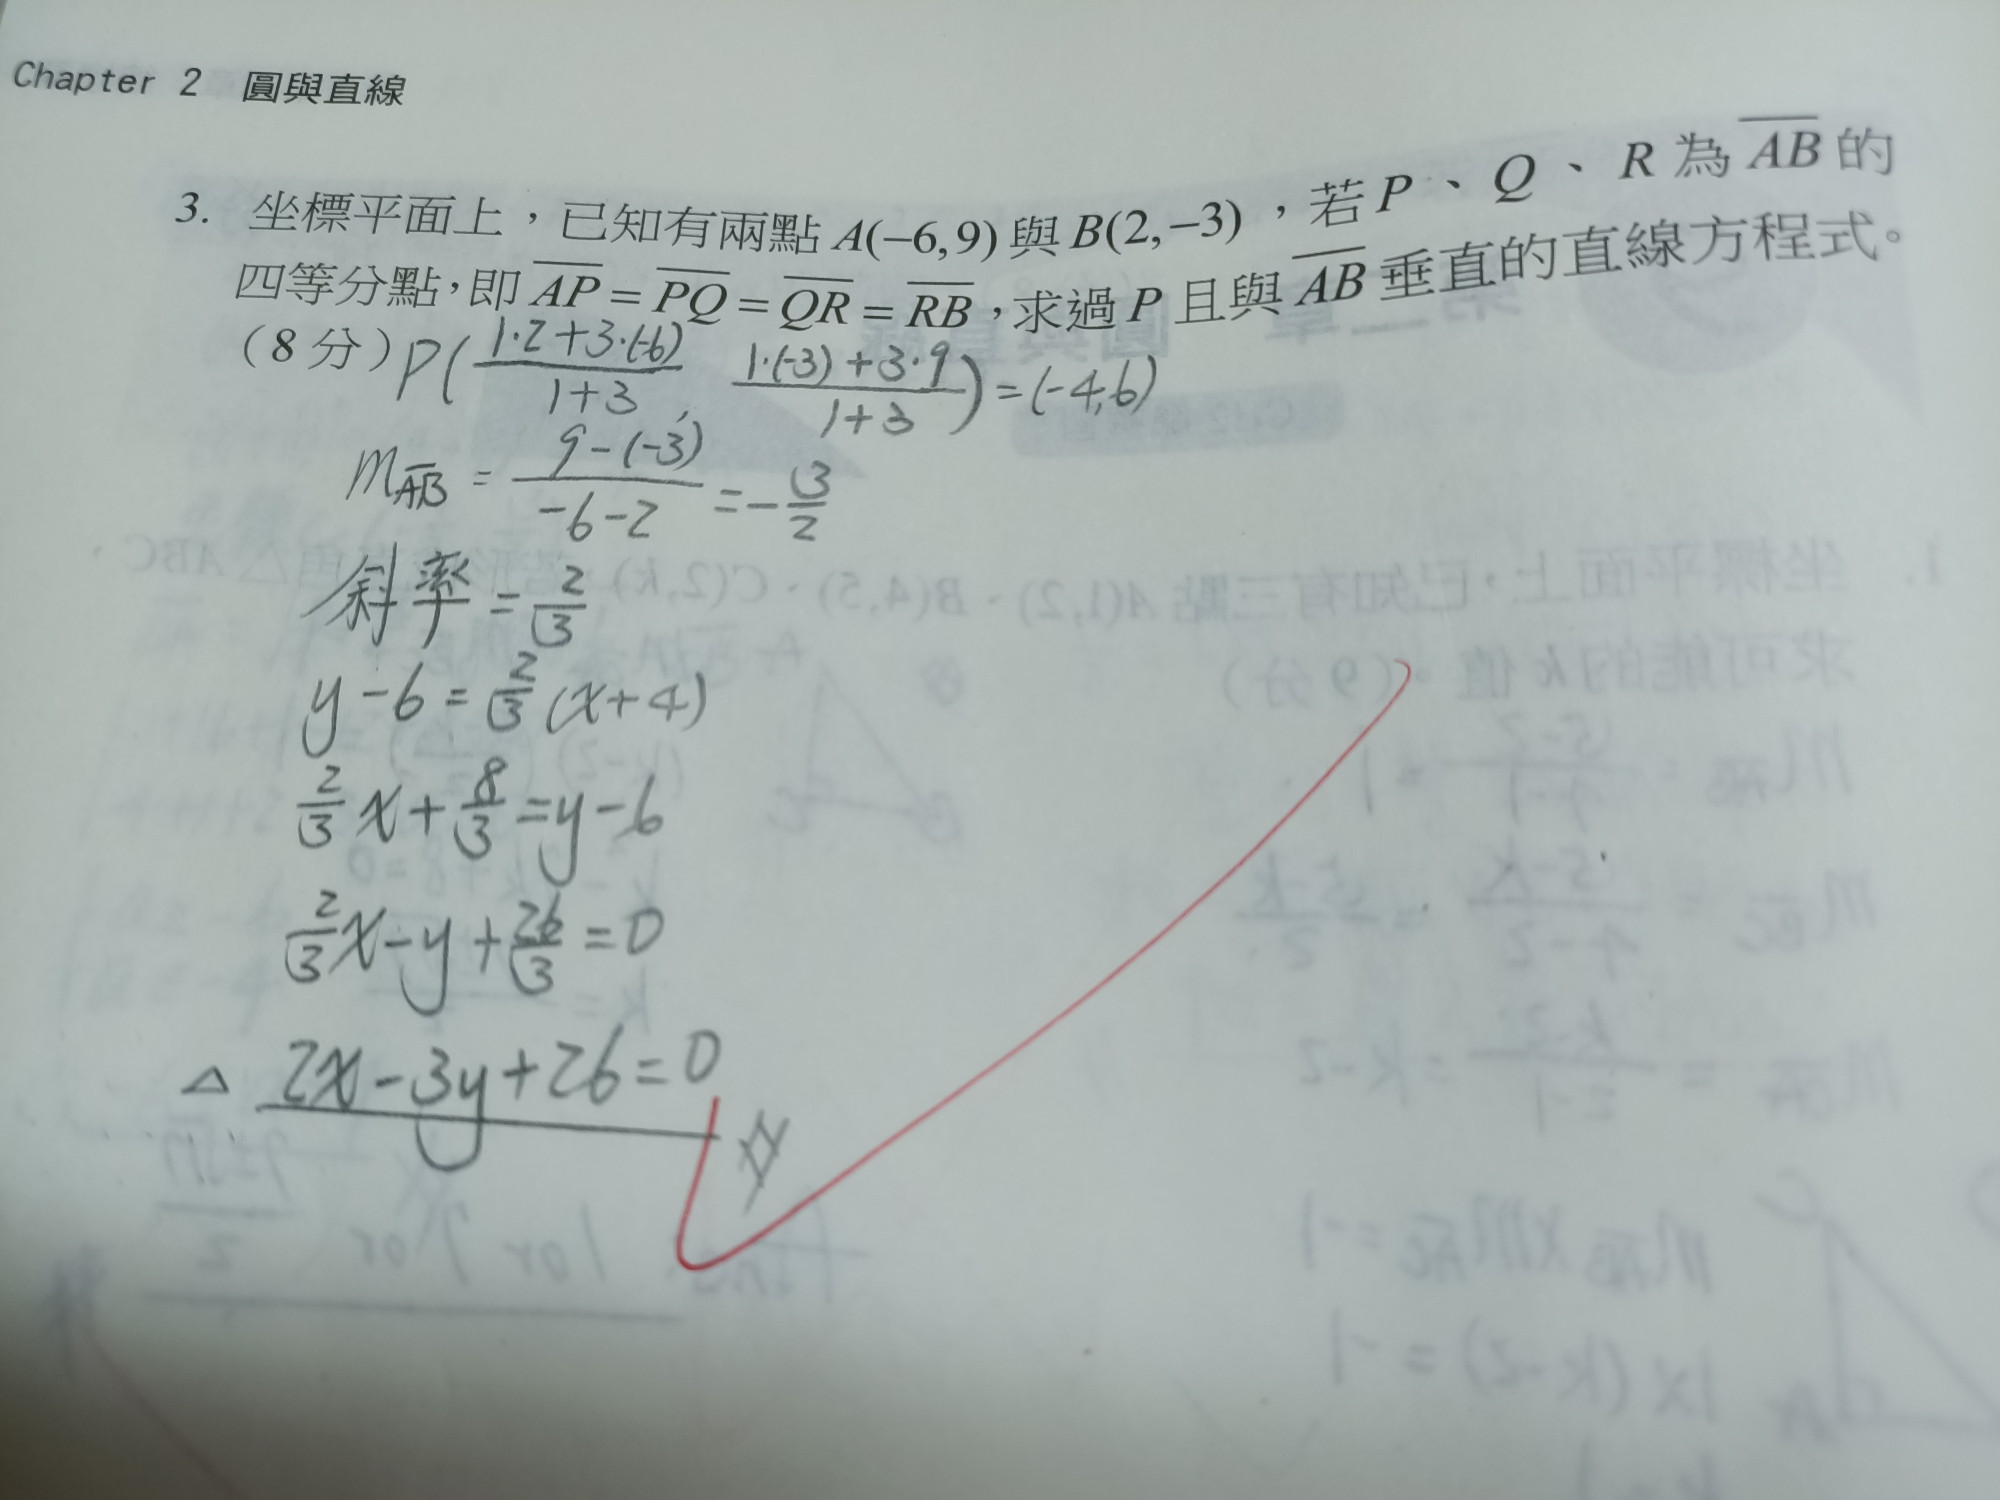 Chapter 2 圓與直線
3. 坐標平面上，已知有兩點 A(−6,9) 與 B(2,−3)，若 P、Q、R 為 \overline{AB} 的
四等分點，即 \overline{AP} = \overline{PQ} = \overline{QR} = \overline{RB}，求過 P 且與 \overline{AB} 垂直的直線方程式。
（8 分）P( \frac{1·2+3·(-6)}{1+3} , \frac{1·(-3)+3·9}{1+3} ) = (-4,6)
m_{\overline{AB}} = \frac{9-(-3)}{-6-2} = -\frac{3}{2}
斜率 = \frac{2}{3}
y-6 = \frac{2}{3}(x+4)
\frac{2}{3}x + \frac{8}{3} = y-6
\frac{2}{3}x - y + \frac{26}{3} = 0
△ 2x-3y+26=0 #